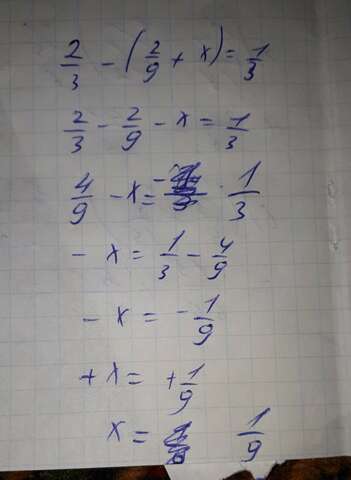 2/3 - (2/9 + x) = 1/3
2/3 - 2/9 - x = 1/3
4/9 - x = 1/3
- x = 1/3 - 4/9
- x = - 1/9
+ x = + 1/9
x = 1/9